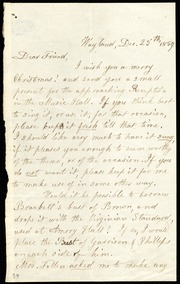 Wayland, Dec. 25th, 1859.
Dear Friend,
I wish you a merry
Christmas! and send you a small
present for the approaching
in the Music Hall. If you think best
to sing it, or use it, for that occasion,
please keep it fresh till that time.
I should like very much to have it sung,
if it pleases you enough to seem worthy
of the theme, or of the occasion. If you do
not want it, please keep it for me
to make use of in some other way.
Would it be possible to borrow
Brackett's bust of Brown, and
drape it with the Virginian Standard,
used at Amory Hall? If so, I would
place the Bust of Garrison & Phillips
on each side of him.
Mrs. Follen asked me to make any